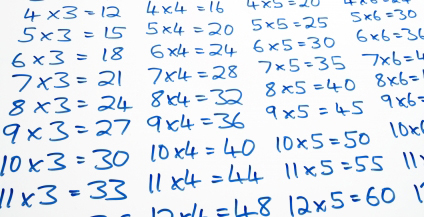 4 x 3 = 12
5 x 3 = 15
6 x 3 = 18
7 x 3 = 21
8 x 3 = 24
9 x 3 = 27
10 x 3 = 30
11 x 3 = 33
4 x 4 = 16
5 x 4 = 20
6 x 4 = 24
7 x 4 = 28
8 x 4 = 32
9 x 4 = 36
10 x 4 = 40
11 x 4 = 44
12 x 4 = 48
4 x 5 = 20
5 x 5 = 25
6 x 5 = 30
7 x 5 = 35
8 x 5 = 40
9 x 5 = 45
10 x 5 = 50
11 x 5 = 55
12 x 5 = 60
5 x 6 = 30
6 x 6 = 36
7 x 6 =
8 x 6 =
9 x 6 =